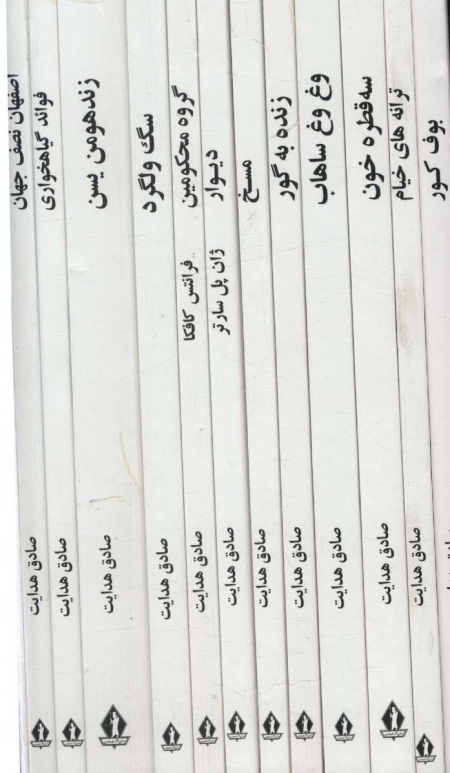 اصفهان نصف جهان
صادق هدایت
فواند گیاهخواری
صادق هدایت
زندهومن یسن
صادق هدایت
سگ ولگرد
صادق هدایت
گروه محکومین
فرانتس کافکا
صادق هدایت
دیوار
ژان پل سارتر
صادق هدایت
مسخ
صادق هدایت
زنده به گور
صادق هدایت
وغ وغ ساهاب
صادق هدایت
سه قطره خون
صادق هدایت
ترانه های خیام
صادق هدایت
بوف کور